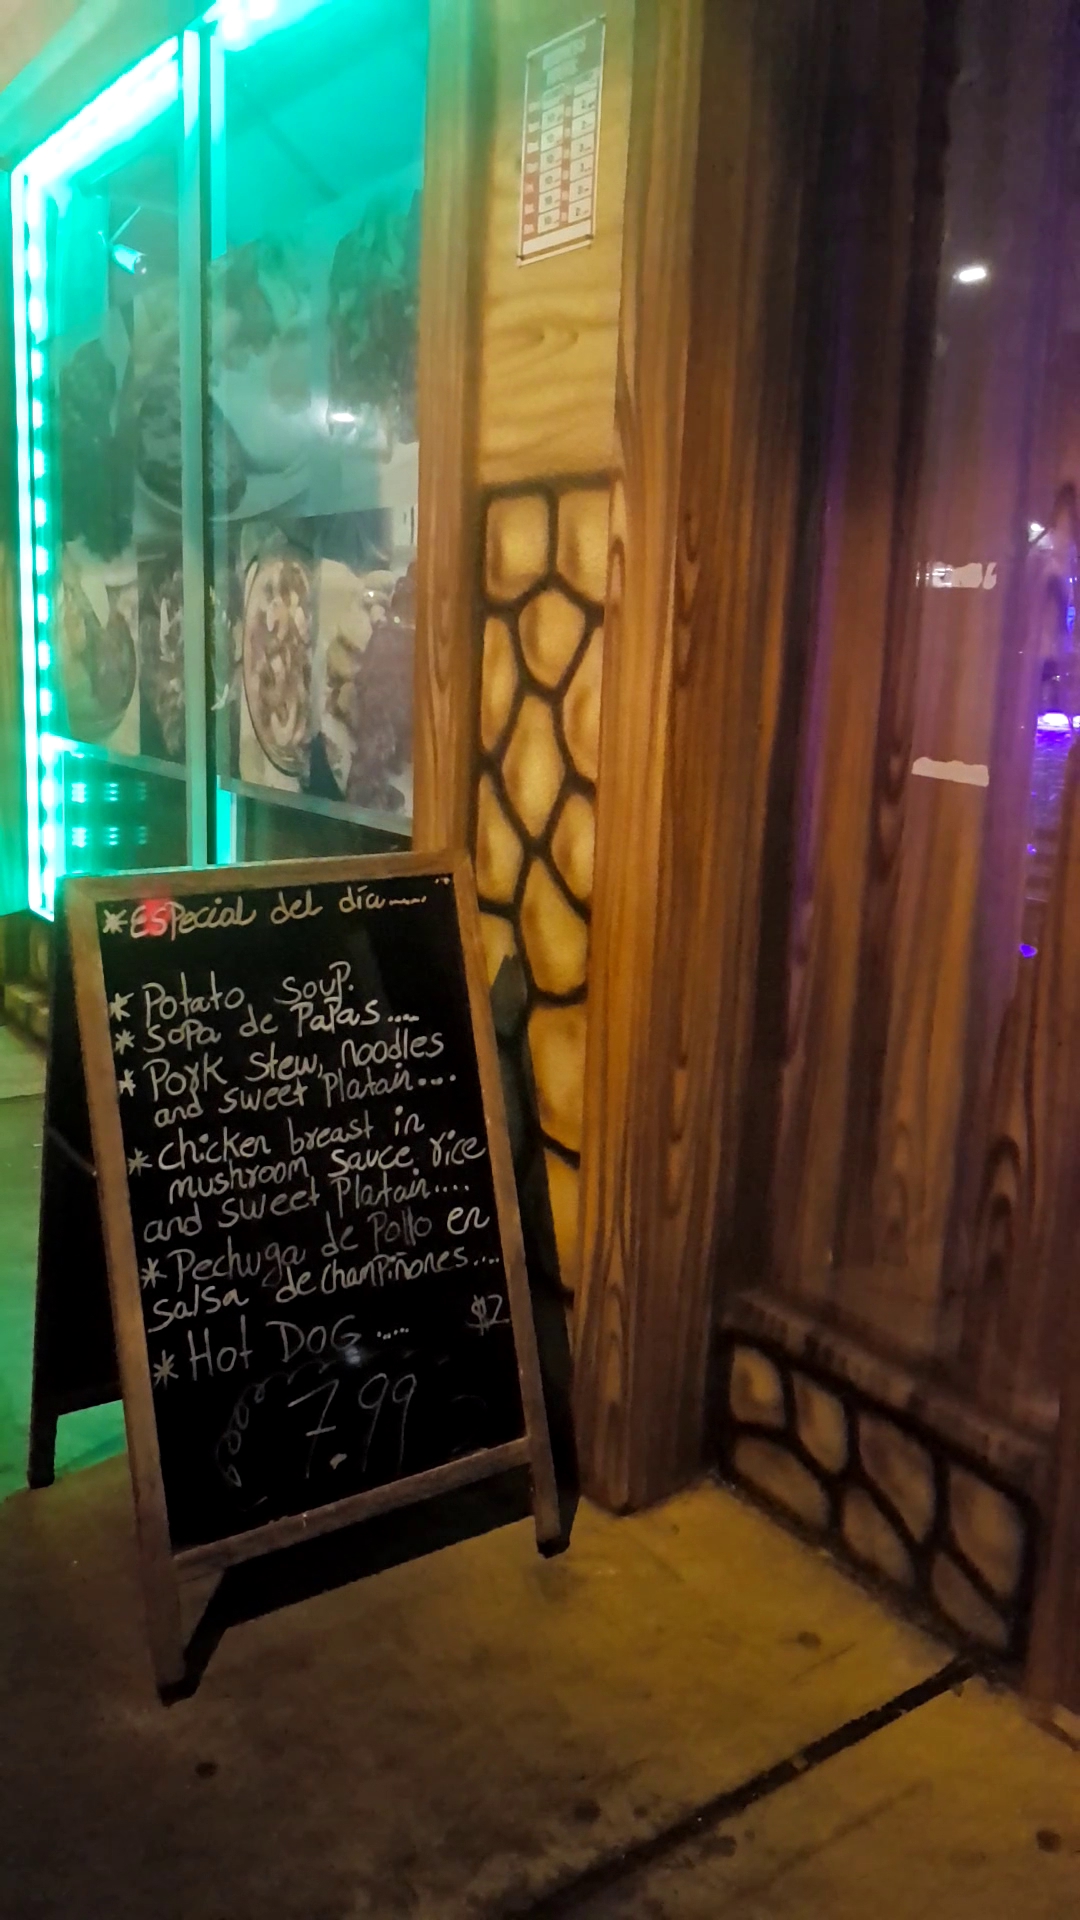 *Especial del día......
* Potato soup.
* Sopa de Papas....
* Pork stew, noodles
and sweet Platain....
* chicken breast in
mushroom sauce rice
and sweet Platain....
* Pechuga de Pollo en
salsa de champiñones....
* Hot DOG ..... $2
7.99